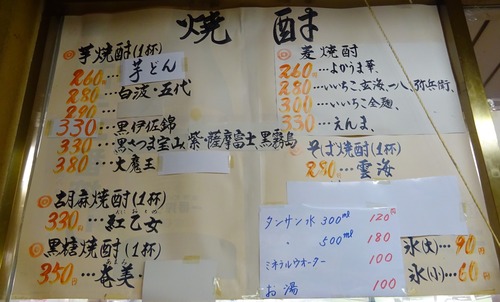 焼酎
◎芋焼酎(1杯)
260…芋どん
280…白波・五代
290
330…黒伊佐錦
330…黒さつま宝山、紫・薩摩富士 黒霧島
380…大魔王
◎胡麻焼酎(1杯)
330…紅乙女
◎黒糖焼酎(1杯)
350…奄美
◎麦焼酎
260…よかうま華、
280…いいちこ、玄海、一八、弥兵衛、
300…いいちこ全麹、
330…えんま、
◎そば焼酎(1杯)
280…雲海
タンサン水 300ml 120円
〃 500ml 180
ミネラルウオーター 100
お湯 100
氷(大)…90円
氷(小)…60円